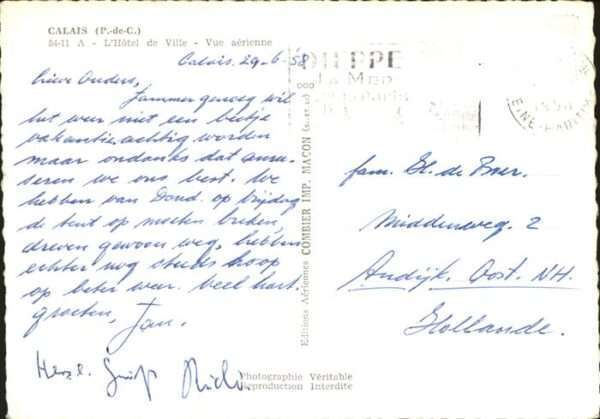 CALAIS (P.-de-C.)
54-11 A - L'Hôtel de Ville - Vue aérienne
Calais. 29-6-'58
Lieve Ouders,
Jammer genoeg wil
het weer niet een beetje
vakantie achtig worden
maar ondanks dat amu-
seren we ons best. We
hebben van Dond. op Vrijdag
de tent op moeten breken,
dreven gewoon weg, hebben
echter nog steeds hoop
op beter weer. Veel hart.
groeten, Jan.
Herzl.
DIEPPE
Editions Aériennes COMBIER IMP. MACON (S.-et-L.)
fam. de Boer.
Middenweg. 2
Andijk. Oost. NH.
Hollande.
Photographie Véritable
Reproduction Interdite